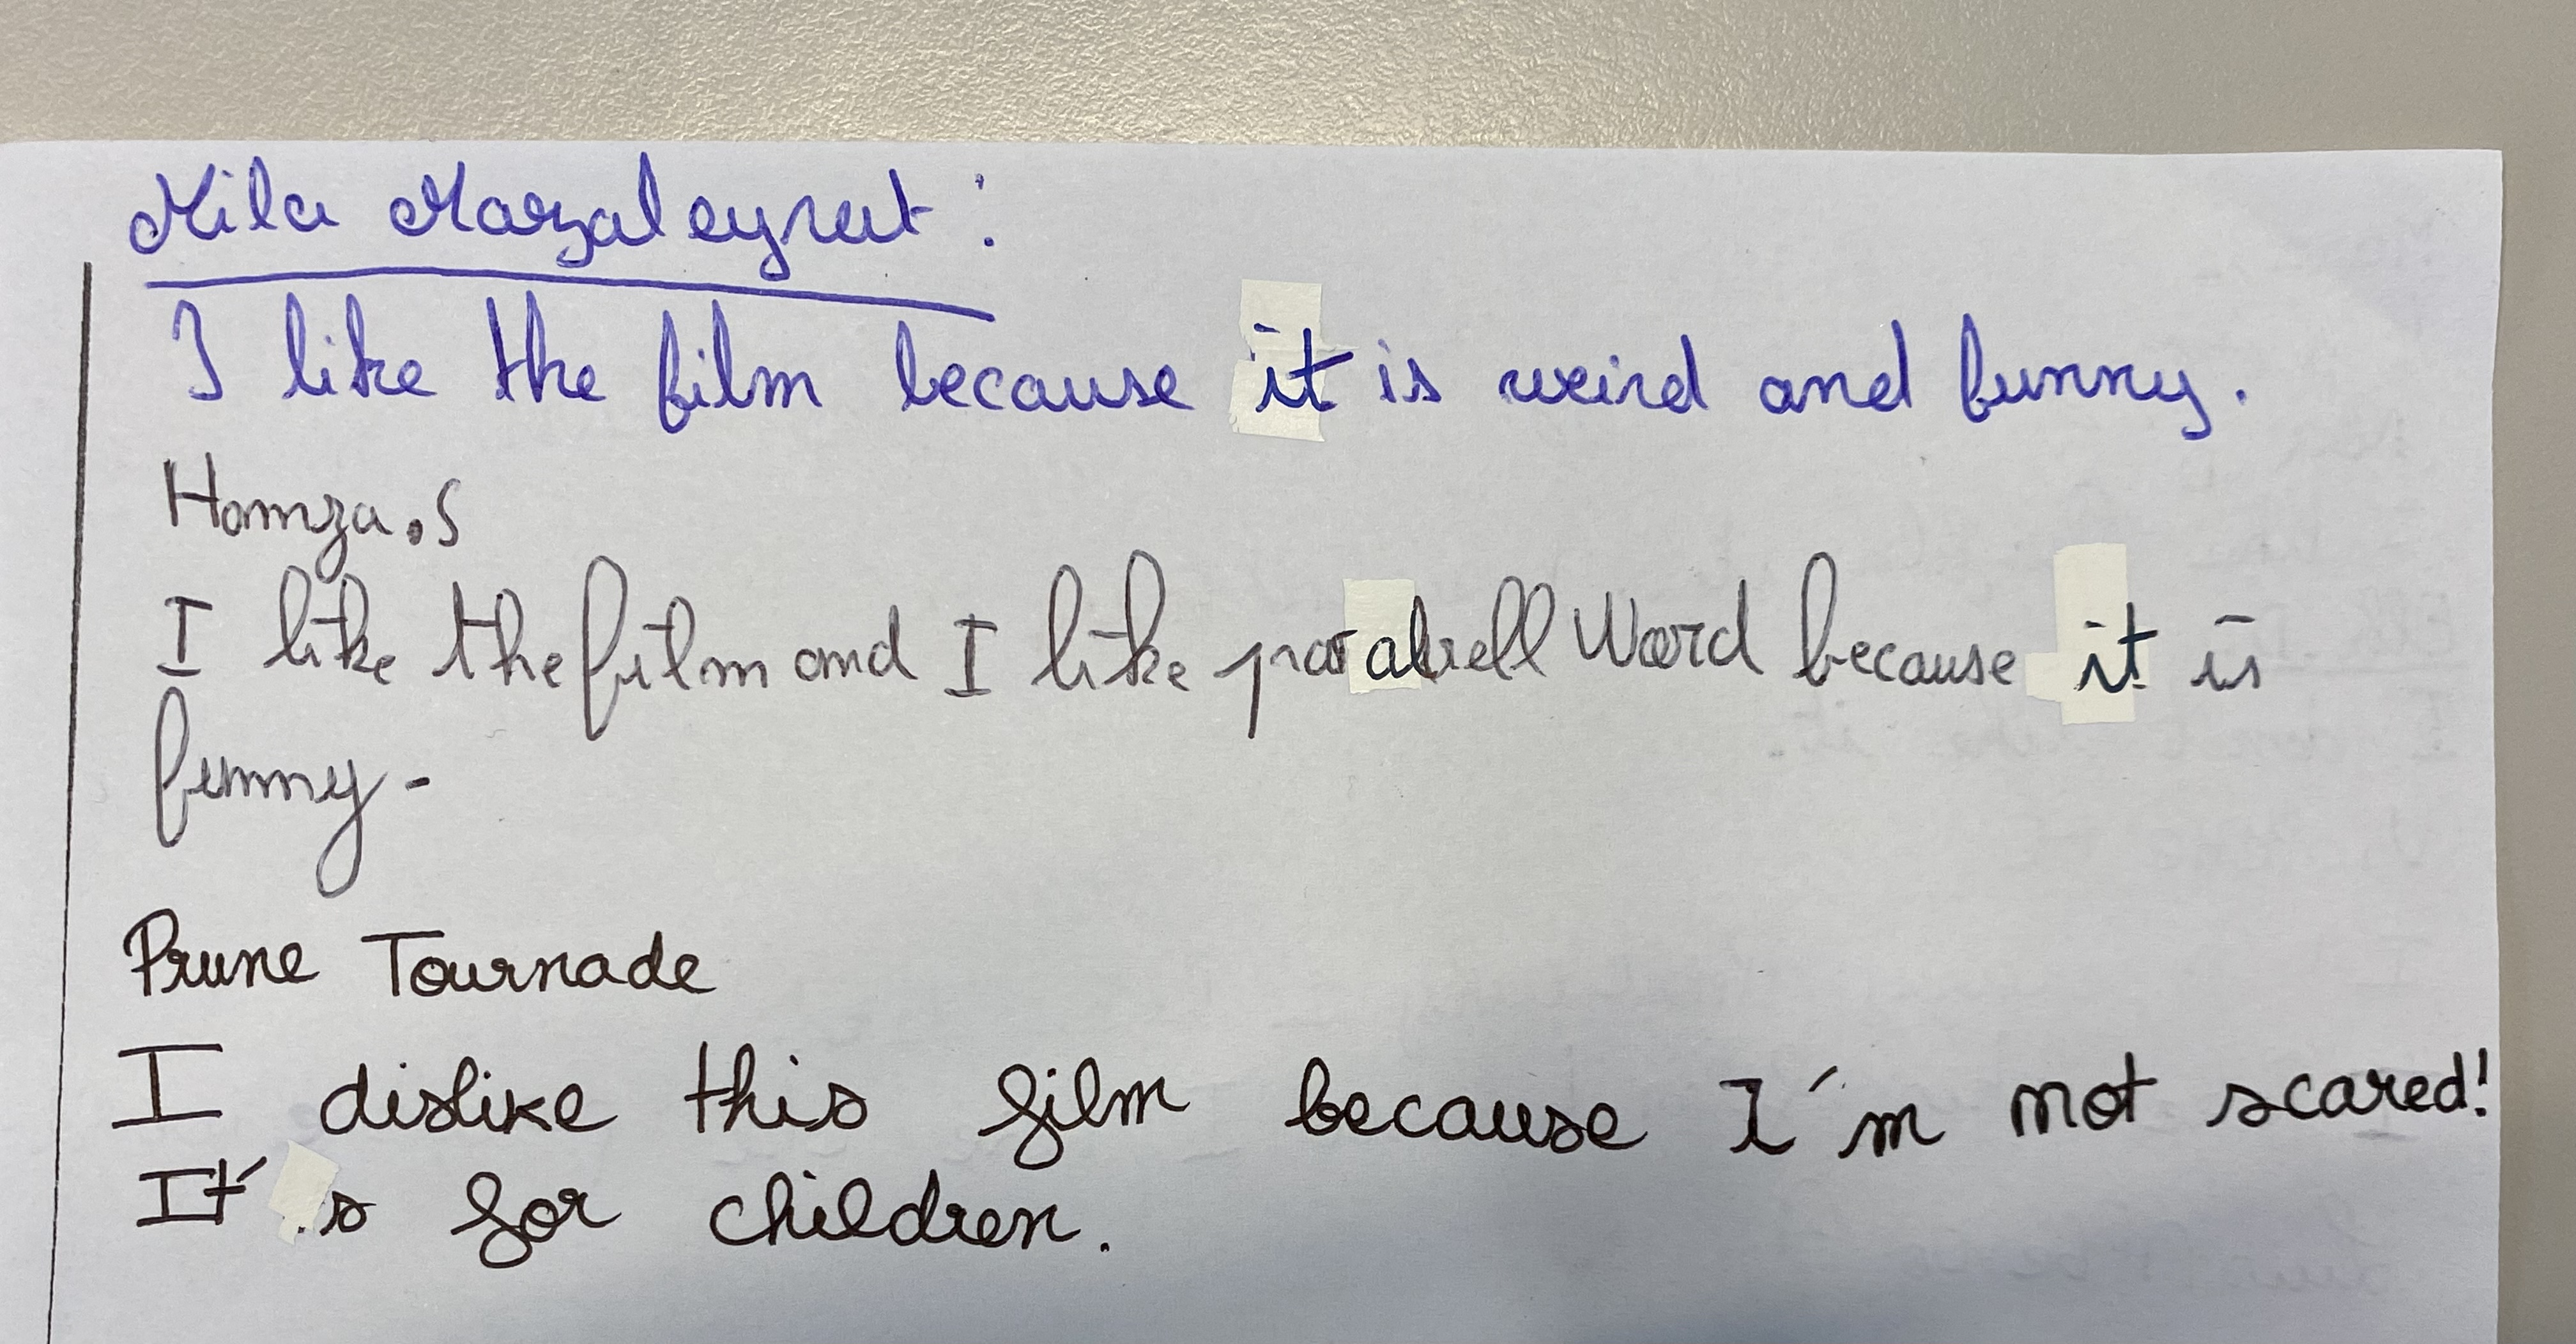 Mila Mazaleyrat :
I like the film because it is weird and funny.
Hamza.S
I like the film and I like paralrell Word because it is
funny.
Prune Tournade
I dislike this film because I'm not scared!
It's for children.